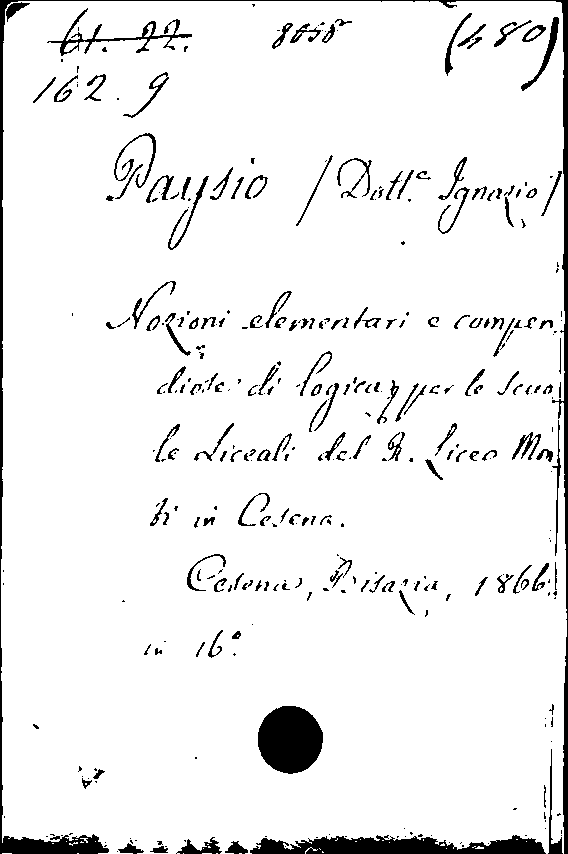 61. 22. 8058 (480)
162. 9
Paysio (Dott.e Ignazio)
Nozioni elementari e compen
diose di logica per le scuo
le Liceali del R. Liceo Mon
ti in Cesena.
Cesena, Bisazia, 1866.
in 16°.